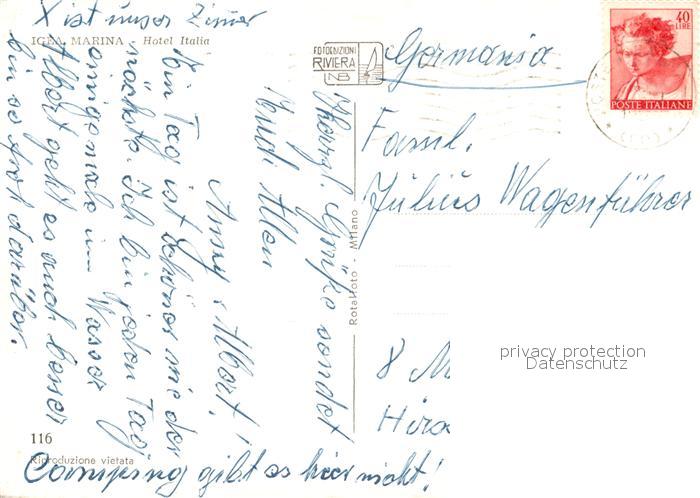 X ist unser Zimmer
IGEA MARINA - Hotel Italia
FOTOEDIZIONI
RIVIERA
NB
Germania
40
LIRE
POSTE ITALIANE
Herzl. Grüße sendet
Euch Allen
Anny + Albert!
Ein Tag ist schöner wie der
nächste. Ich bin jeden Tag
einigemale im Wasser
Albert geht es auch besser
bin so froh darüber.
Faml.
Julius Wagenführer
8 M
Hira
Rotalfoto - Milano
privacy protection
Datenschutz
116
Riproduzione vietata
Camping gibt es hier nicht!